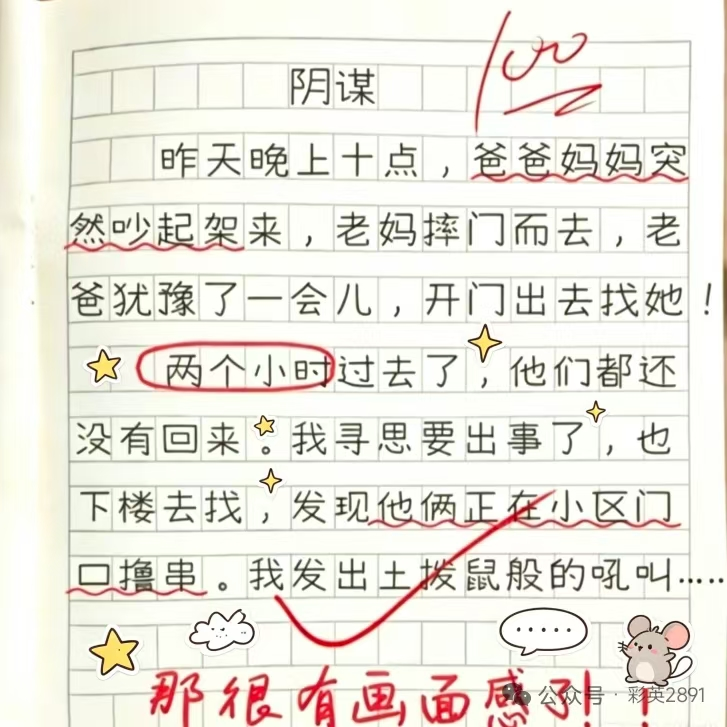 100
阴谋
昨天晚上十点，爸爸妈妈突
然吵起架来，老妈摔门而去，老
爸犹豫了一会儿，开门出去找她！
两个小时过去了，他们都还
没有回来。我寻思要出事了，也
下楼去找，发现他俩正在小区门
口撸串。我发出土拨鼠般的吼叫……
那很有画面感了！！
公众号·彩英2891